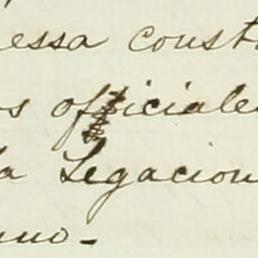 essa const
os officiale
la Legacion
uno-